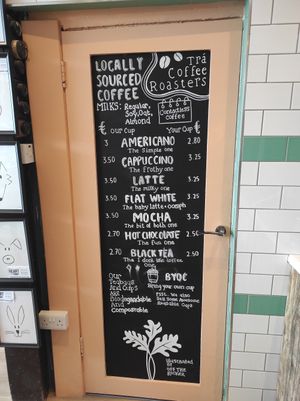 LOCALLY
SOURCED
COFFEE
Trá
Coffee
Roasters
MILKS: Regular,
Soy, Oat,
Almond
Contactless
Coffee
€ Our Cup Your Cup €
3 AMERICANO 2.80
The Simple one
3.50 CAPPUCCINO 3.25
The frothy one
3.50 LATTE 3.25
The milky one
3.50 FLAT WHITE 3.25
The baby latte + oomph
3.50 MOCHA 3.25
The bit of both one
2.70 HOT CHOCOLATE 2.50
The fun one
2.70 BLACK TEA 2.50
The I don't like coffee
one
Our
Teabags
And Cups
Are
Biodegradable
And
Compostable
BYOC
Bring your own cup
Psst.. We also
Sell Some Awesome
Reusable Cups
Illustrated
by